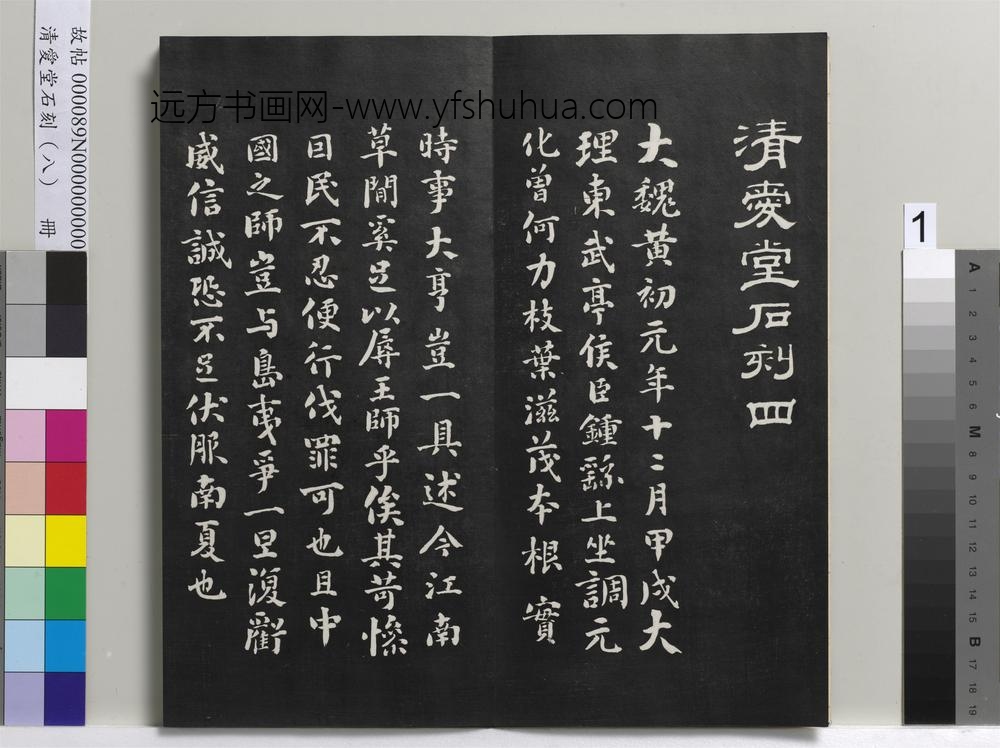 清愛堂石刻四
大魏黄初元年十二月甲戌大
理東武亭侯臣鍾繇上坐調元
化曾何力枝葉滋茂本根實
時事大亨豈一具述今江南
草間奚足以辱王師乎俟其苛慘
囙民不忍便行伐罪可也且中
國之師豈与島夷爭一旦復
威信誠恐不足伏服南夏也
远方书画网-www.yfshuhua.com
故帖 000089N000000000
清愛堂石刻(八) 冊
1
A 1 2 3 4 5 6 M 8 9 10 11 12 13 14 15 B 17 18 19